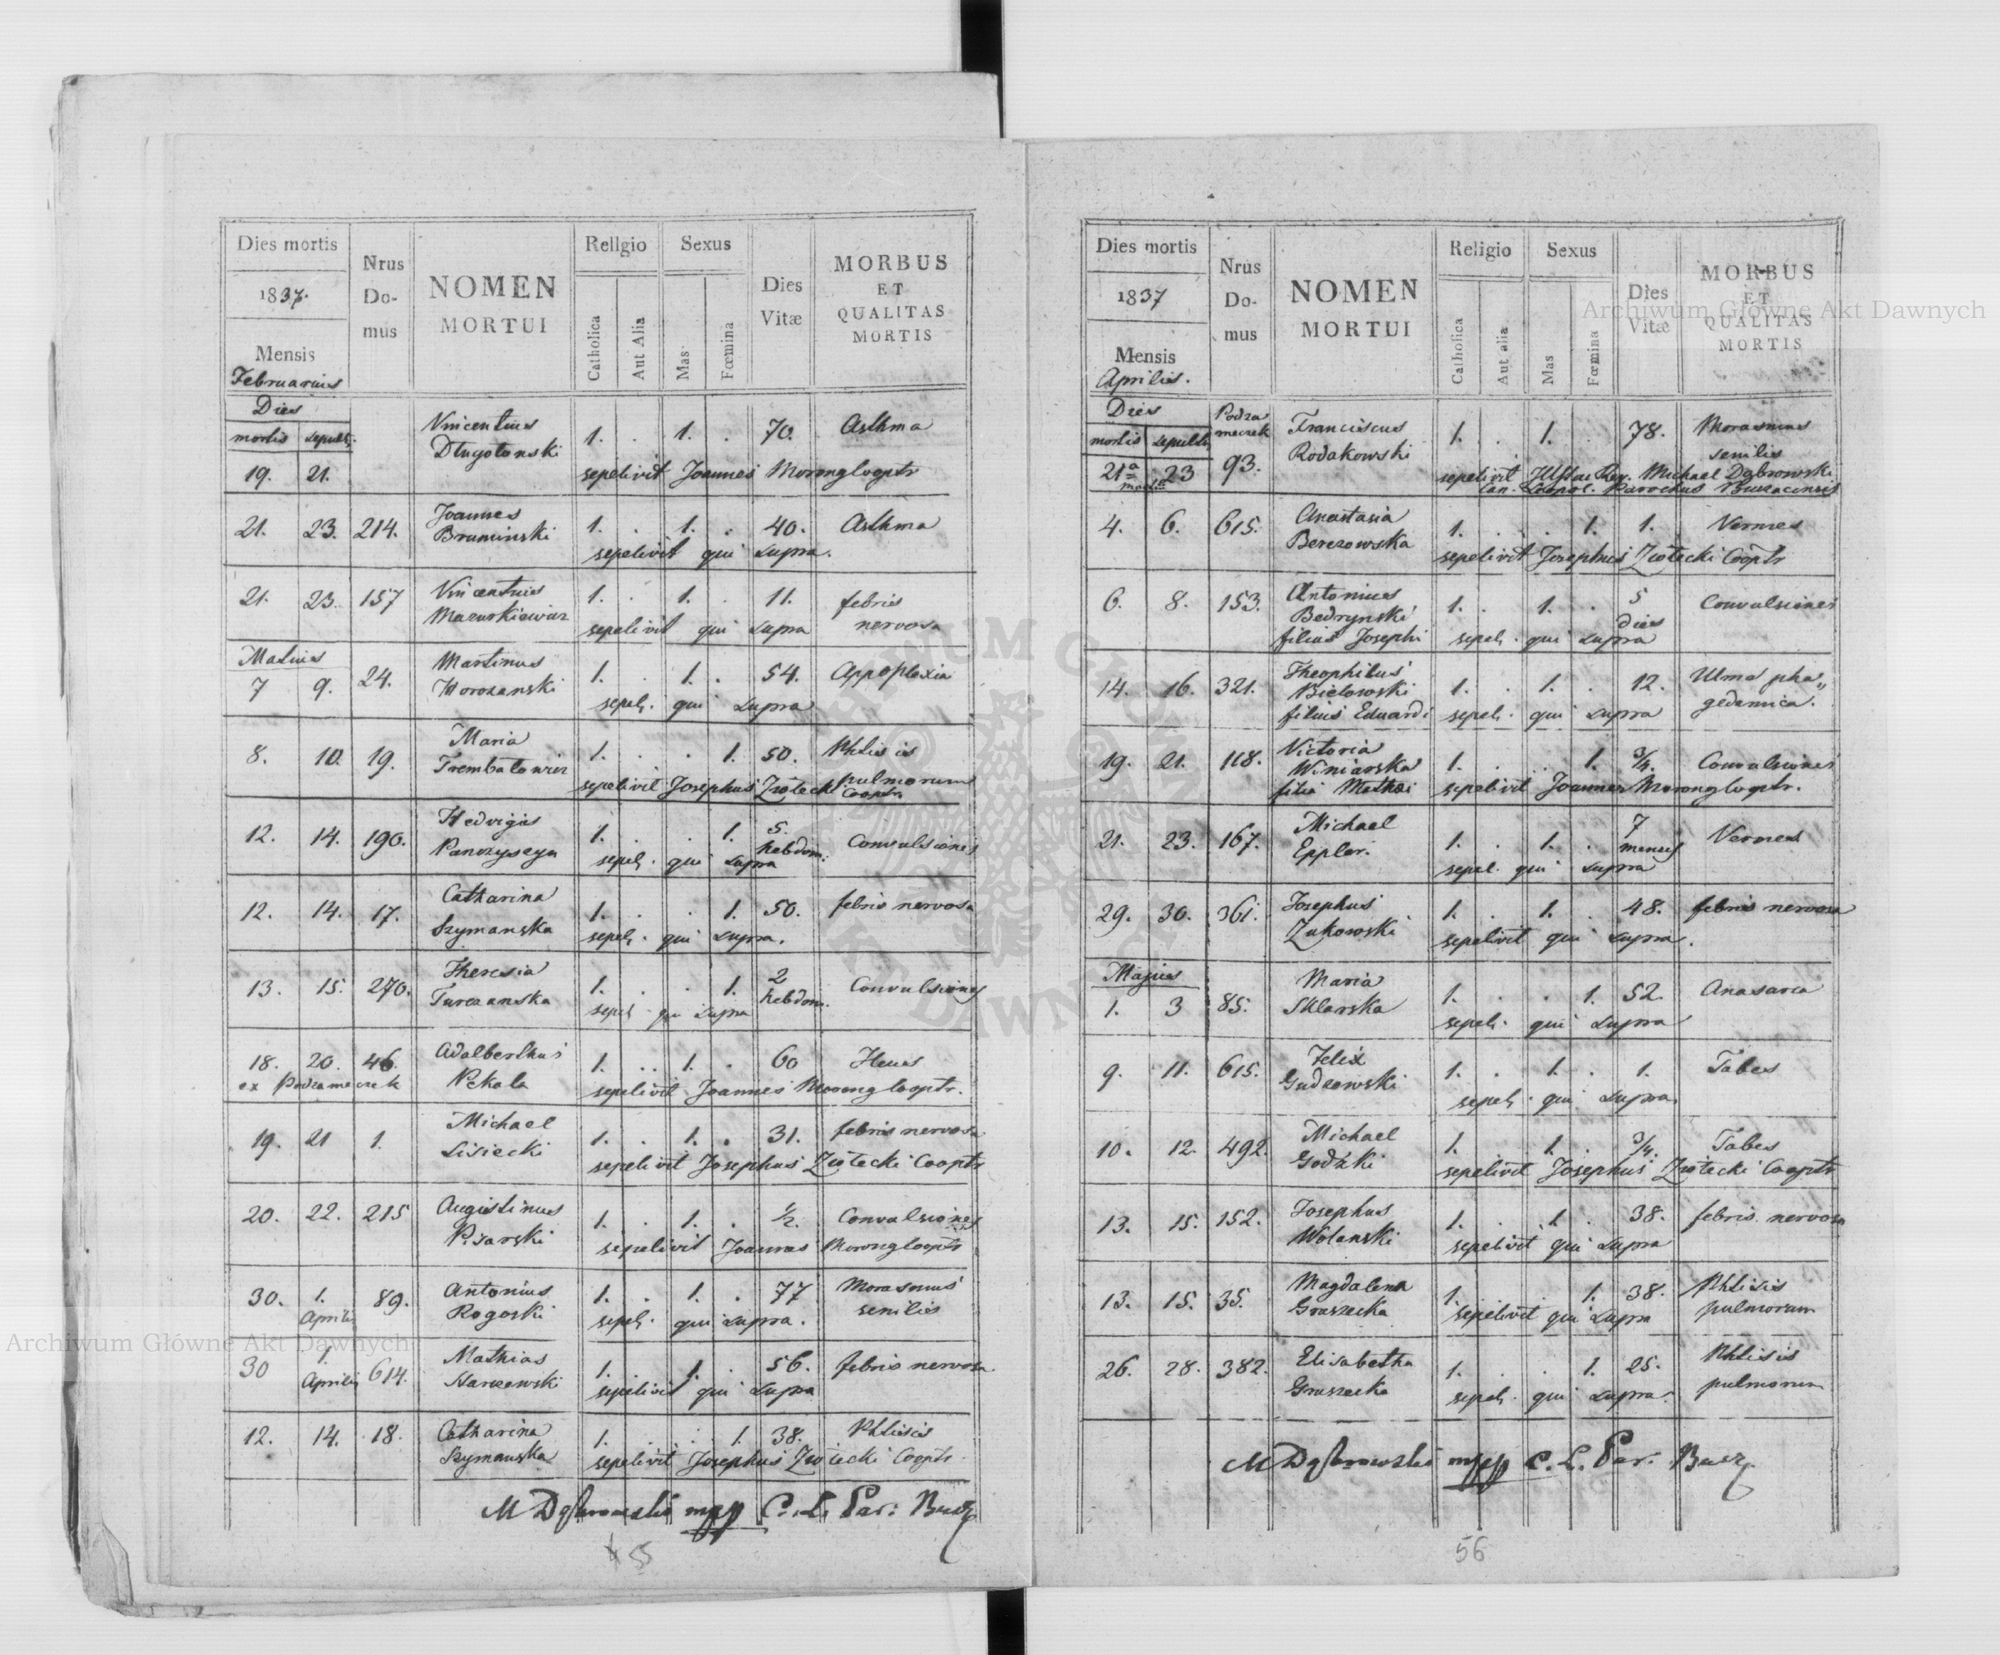 Dies mortis
1837.
Mensis
Februarius
Nrus
Do-
mus
NOMEN
MORTUI
Religio
Catholica
Aut Alia
Sexus
Mas
Fœmina
Dies
Vitæ
MORBUS
ET
QUALITAS
MORTIS
Dies
mortis sepult:
19. 21.
Vincentius
Długotonski
1. . 1. . 70. Asthma
sepelivit Joannes Morong Cooptr
21. 23. 214. Joannes
Bruminski
1. . 1. . 40. Asthma
sepelivit qui supra.
21. 23. 157 Vincentius
Mazurkiewicz
1. . 1. . 11. febris
nervosa
sepelivit qui supra
Matius
7 9. 24. Martinus
Horozanski
1. . 1. . 54. Appoplexia
sepel. qui supra
8. 10. 19. Maria
Trembatowicz
1. . . 1. 50. Phtisis
pulmorum
sepelivit Josephus Ziołecki Cooptr
12. 14. 190. Hedvigis
1. . . 1. 5.
hebdom. Convulsiones
sepel. qui supra
12. 14. 17. Catharina
Szymanska
1. . . 1. 50. febris nervosa
sepel. qui supra.
13. 15. 270. Theresia
Turczanska
1. . . 1. 2
hebdom. Convulsiones
sepel. qui supra
18. 20. 46.
ex Podzameczek
Adalberthus
Pekala
1. . 1. . 60
sepelivit Joannes Morong Cooptr.
19. 21 1. Michael
Lisiecki
1. . 1. . 31. febris nervosa
sepelivit Josephus Ziołecki Cooptr
20. 22. 215 Augustinus
Pisarski
1. . 1. . ½. Convulsiones
sepelivit Joannes Morong Cooptr
30. 1.
Aprilis 89. Antonius
Rogoski
1. . 1. . 77 Morasmus
senilis
sepel. qui supra.
30 1.
Aprilis 614. Mathias
Harczewski
1. . 1. . 56. febris nervosa.
sepelivit qui supra
12. 14. 18. Catharina
Szymanska
1. . . 1. 38. Phtisis
sepelivit Josephus Ziołecki Cooptr.
M Dąbrowski mpp C. L. Par: Bucz
55
Dies mortis
1837
Mensis
Aprilis.
Nrus
Do-
mus
NOMEN
MORTUI
Religio
Catholica
Aut alia
Sexus
Mas
Fœmina
Dies
Vitæ
MORBUS
ET
QUALITAS
MORTIS
Dies
mortis sepult:
21a 23
Podza
meczek
93.
Franciscus
Rodakowski
1. . 1. . 78. Morasmus
senilis
sepelivit Illstr Rev. Michael Dąbrowski
Can. Leopol. Parochus Buczacensis
4. 6. 615. Anastasia
Berezowska
1. . . 1. 1. Vermes
sepelivit Josephus Ziołecki Cooptr
6. 8. 153. Antonius
Bedrynski
filius Josephi
1. . 1. . 5
dies Convulsiones
sepel. qui supra
14. 16. 321. Theophilus
Bielowski
filius Eduardi
1. . 1. . 12. Ulma pha„
gedemica.
sepel. qui supra
19. 21. 118. Victoria
Winiarska
filia Mathei
1. . . 1. ¾. Convulsiones
sepelivit Joannes Morong Cooptr.
21. 23. 167. Michael
Eppler.
1. . 1. . 7
menses Vermes
sepel. qui supra
29. 30. 361. Josephus
Zukowski
1. . 1. . 48. febris nervosa
sepelivit qui supra.
Majus
1. 3 85. Maria
Sklarska
1. . . 1. 52. Anasarca
sepel. qui supra
9. 11. 615. Felix
Gudzowski
1. . 1. . 1. Tabes
sepel. qui supra.
10. 12. 492. Michael
Godzki
1. . 1. . ¾. Tabes
sepelivit Josephus Ziołecki Cooptr
13. 15. 152. Josephus
Wolanski
1. . 1. . 38. febris nervosa
sepelivit qui supra
13. 15. 35. Magdalena
Gruszecka
1. . . 1. 38. Phtisis
pulmorum
sepelivit qui supra
26. 28. 382. Elisabetha
Gruszecka
1. . . 1. 25. Phtisis
pulmorum
sepel. qui supra.
M Dąbrowski mpp C. L. Par. Bucz
56
Archiwum Główne Akt Dawnych
Archiwum Główne Akt Dawnych
ARCHIWUM GŁÓWNE AKT DAWNYCH